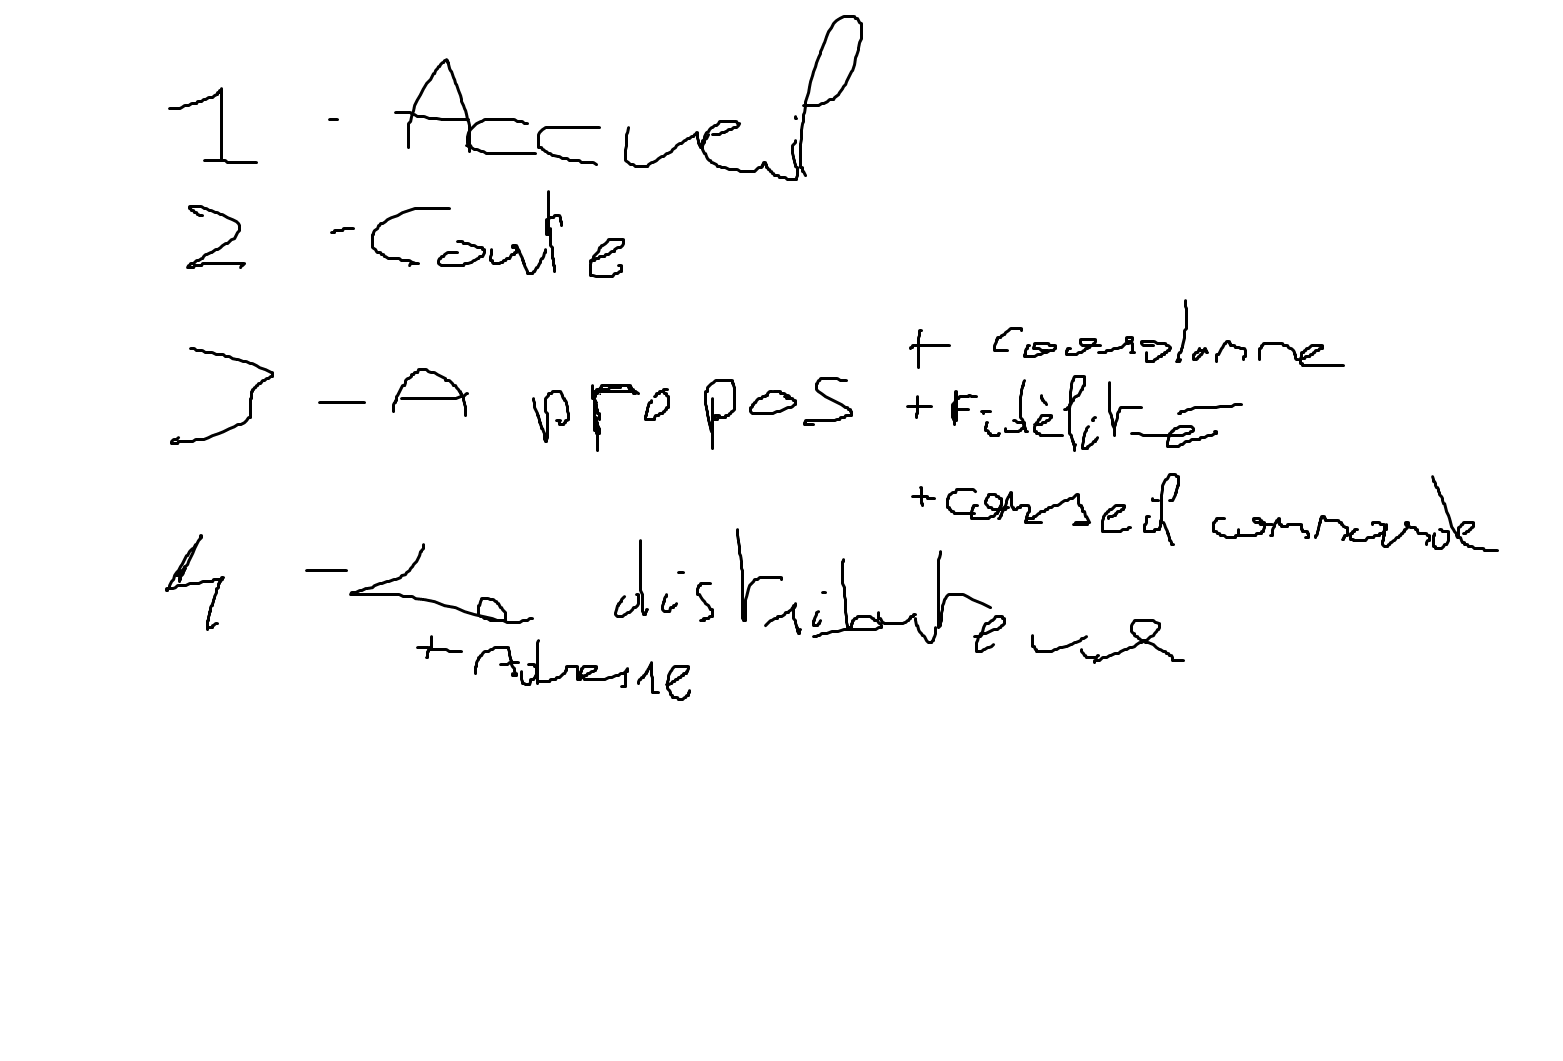 1 - Accueil
2 - Carte
3 - A propos + coordonne
+ Fidèlité
+ conseil commande
4 - Le distributeur
+ Adresse